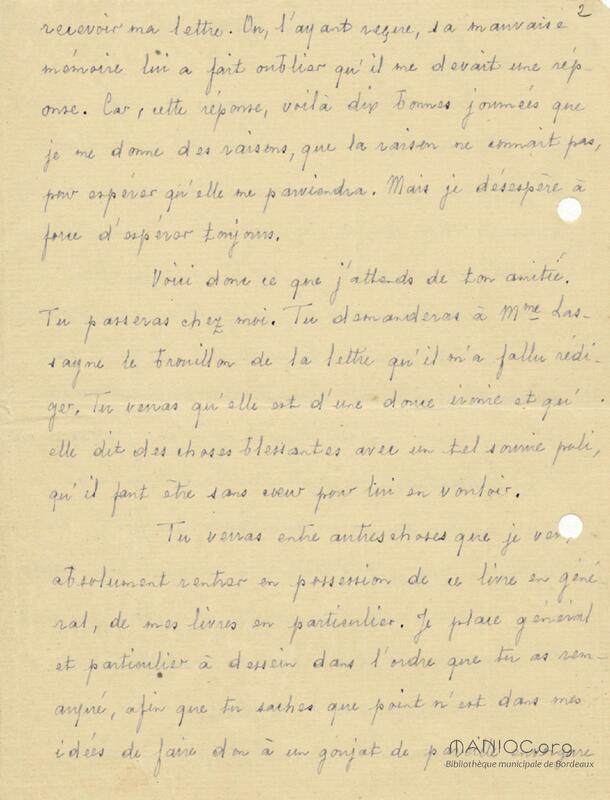 2
recevoir ma lettre. Or, l'ayant reçue, sa mauvaise
mémoire lui a fait oublier qu'il me devait une rép-
onse. Car, cette réponse, voilà dix bonnes journées que
je me donne des raisons, que la raison ne connait pas,
pour espérer qu'elle me parviendra. Mais je désespère à
force d'espérer toujours.
Voici donc ce que j'attends de ton amitié.
Tu passeras chez moi. Tu demanderas à Mme Las-
sagne le brouillon de la lettre qu'il m'a fallu rédi-
ger. Tu verras qu'elle est d'une douce ironie et qu'
elle dit des choses blessantes avec un tel sourire poli,
qu'il faut être sans cœur pour lui en vouloir.
Tu verras entre autres choses que je
absolument rentrer en possession de ce livre en géné-
ral, de mes livres en particulier. Je place général
et particulier à dessein dans l'ordre que tu as rem-
arqué, afin que tu saches que point n'est dans mes
idées de faire don à un goujat de
MANIOC.org
Bibliothèque municipale de Bordeaux